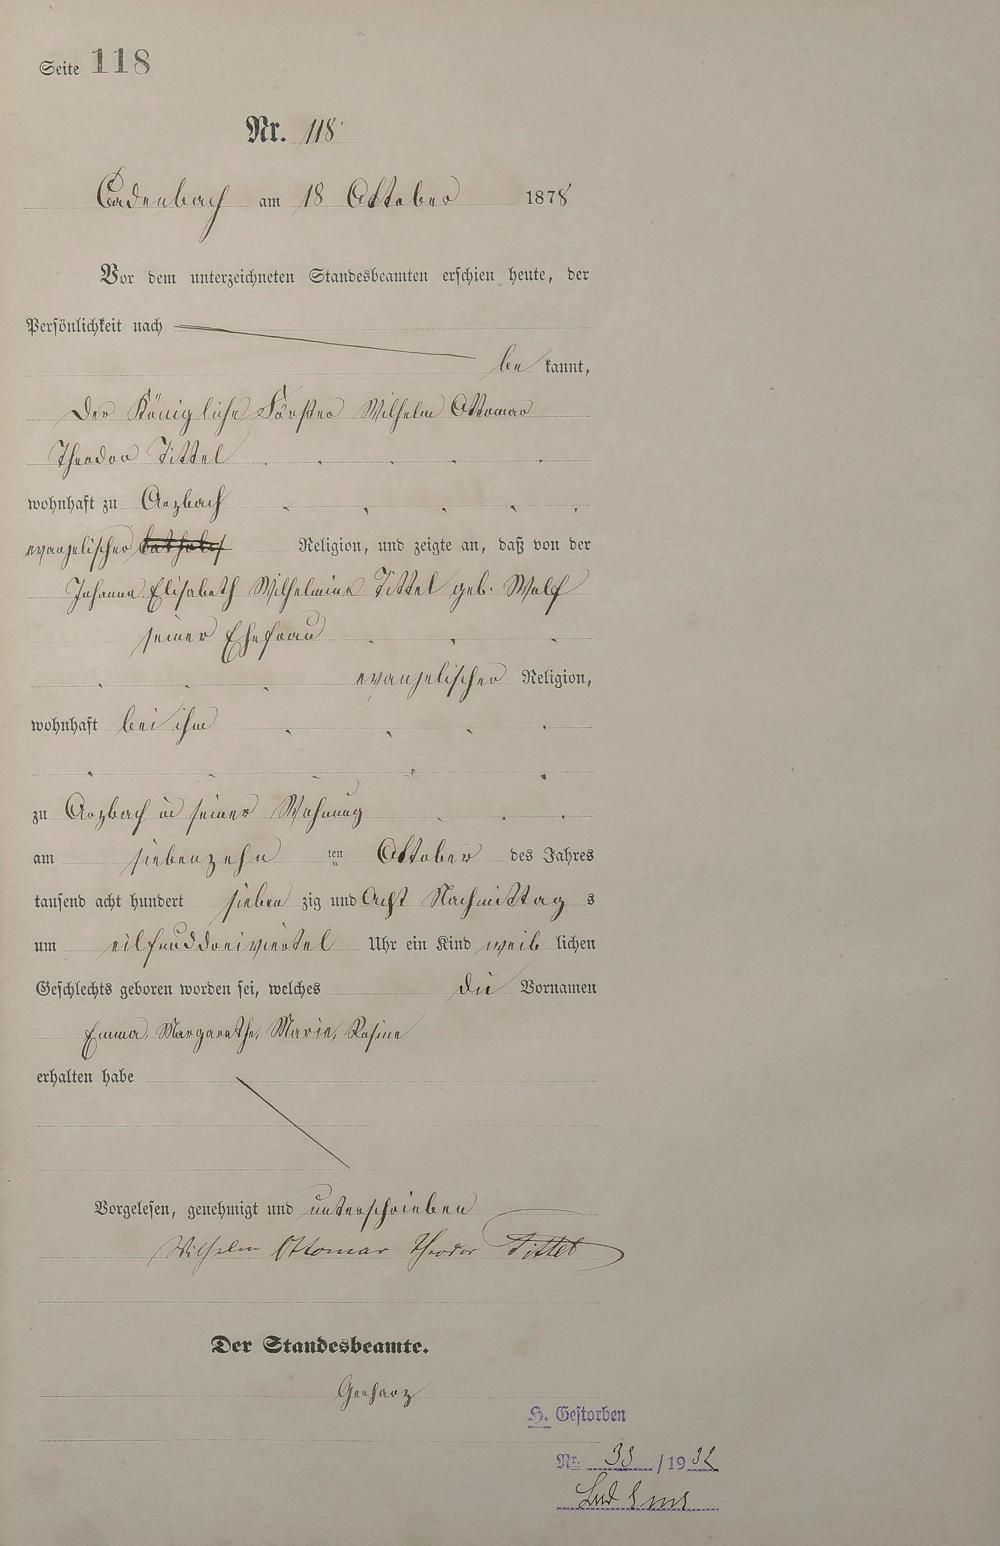 Seite 118
Nr. 118
Cadenbach am 18 Oktober 1878
Vor dem unterzeichneten Standesbeamten erschien heute, der
Persönlichkeit nach
be kannt,
Der Königliche Förster Wilhelm Ottomar
Theodor Tittel
wohnhaft zu Arzbach
evangelischer Religion, und zeigte an, daß von der
Johanna Elisabeth Wilhelmine Tittel geb. Wolf
seiner Ehefrau
evangelischer Religion,
wohnhaft bei ihm
zu Arzbach in seiner Wohnung
am siebenzehn ten Oktober des Jahres
tausend acht hundert sieben zig und Acht Nachmittag s
um eilfunddreiviertel Uhr ein Kind weib lichen
Geschlechts geboren worden sei, welches die Vornamen
Emma, Margarethe, Marie, Rosine
erhalten habe
Vorgelesen, genehmigt und unterschrieben
Wilhelm Ottomar Theodor Tittel
Der Standesbeamte.
Gerharz
H. Gestorben
Nr. 33 /1932
Bad Ems